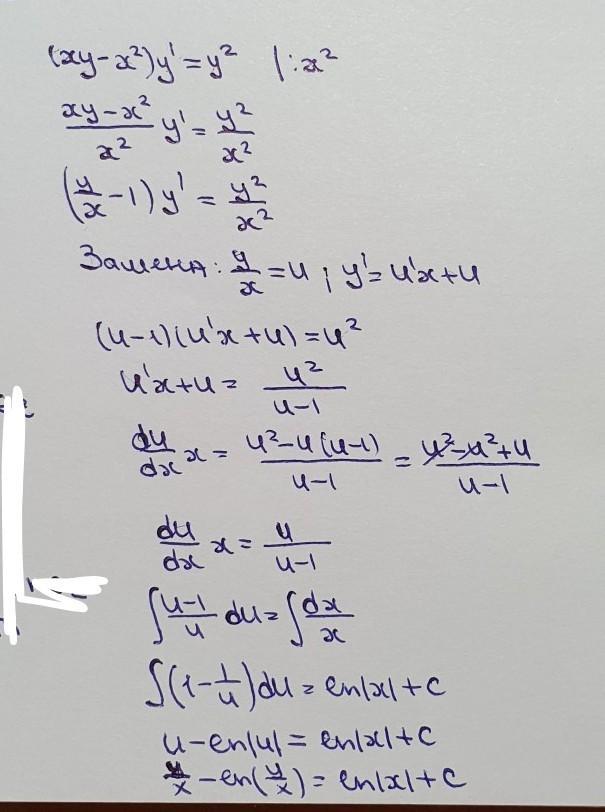 (xy-x²)y'=y² |:x²
(xy-x²)/x² y' = y²/x²
(y/x -1) y' = y²/x²
Замена: y/x = u ; y'=u'x+u
(u-1)(u'x+u)=u²
u'x+u = u²/(u-1)
du/dx x = (u²-u(u-1))/(u-1) = (u²-u²+u)/(u-1)
du/dx x = u/(u-1)
∫(u-1)/u du = ∫dx/x
∫(1-1/u)du = ln|x|+c
u-ln|u| = ln|x|+c
y/x -ln(y/x) = ln|x|+c